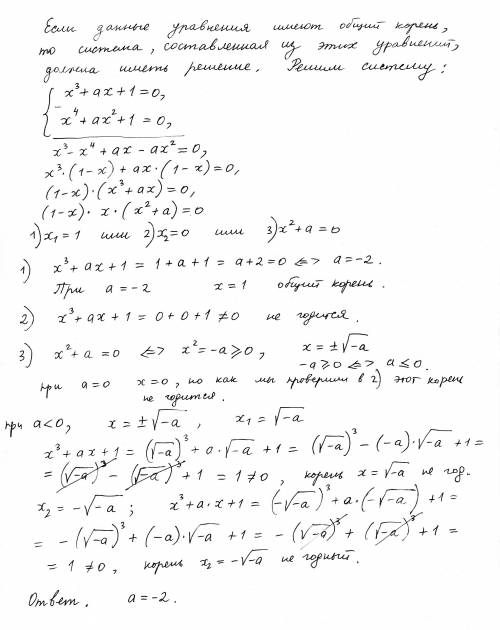 Если данные уравнения имеют общий корень,
то система, составленная из этих уравнений,
должна иметь решение. Решим систему:
{ x³ + ax + 1 = 0,
− x⁴ + ax² + 1 = 0,
x³ − x⁴ + ax − ax² = 0,
x³·(1−x) + ax·(1−x) = 0,
(1−x)·(x³ + ax) = 0,
(1−x)· x·(x² + a) = 0
1) x₁ = 1 или 2) x₂ = 0 или 3) x² + a = 0
1) x³ + ax + 1 = 1 + a + 1 = a + 2 = 0 <=> a = −2.
При a = −2 x = 1 общий корень.
2) x³ + ax + 1 = 0 + 0 + 1 ≠ 0 не годится.
3) x² + a = 0 <=> x² = −a ≥ 0, x = ±√−a
−a ≥ 0 <=> a ≤ 0.
при a = 0 x = 0, но как мы проверили в 2) этот корень
не годится.
при a < 0, x = ±√−a, x₁ = √−a
x³ + ax + 1 = (√−a)³ + a·√−a + 1 = (√−a)³ − (−a)·√−a + 1 =
= (√−a)³ − (√−a)³ + 1 = 1 ≠ 0, корень x = √−a не год.
x₂ = −√−a; x³ + a·x + 1 = (−√−a)³ + a·(−√−a) + 1 =
= −(√−a)³ + (−a)·√−a + 1 = −(√−a)³ + (√−a)³ + 1 =
= 1 ≠ 0, корень x₂ = −√−a не годный.
Ответ. a = −2.